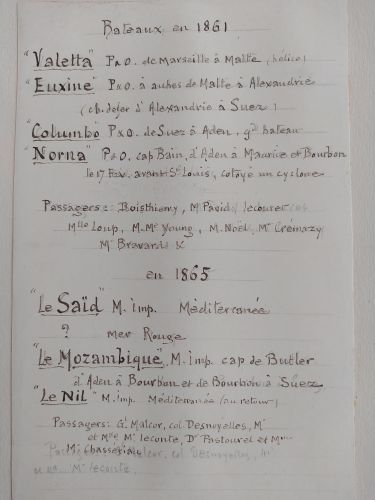 Bateaux en 1861
"Valetta" P&O. de Marseille à Malte (hélice)
"Euxine" P&O à aubes de Malte à Alexandrie
(ch. de fer d'Alexandrie à Suez)
"Columbo" P&O. de Suez à Aden, gd bateau
"Norna" P&O, cap Bain, d'Aden à Maurice et Bourbon
le 17 Fev. avant St Louis, cotoyé un cyclone
Passagers: Boisthierry, M. Pavid, Lecouret
Mlle Loup, M. Mr Young, M. Noël, Mr Crémazy
Mr Bravards &
en 1865
"Le Saïd" M. imp. Méditerranée
? mer Rouge
"Le Mozambique", M. imp. cap de Butler
d'Aden à Bourbon et de Bourbon à Suez
"Le Nil" M. imp. Méditerranée (au retour)
Passagers: Gl Malcor, col. Desnoyelles, Mr
et Mme Mr Leconte, Dr Pastourel et
Mr Leconte,